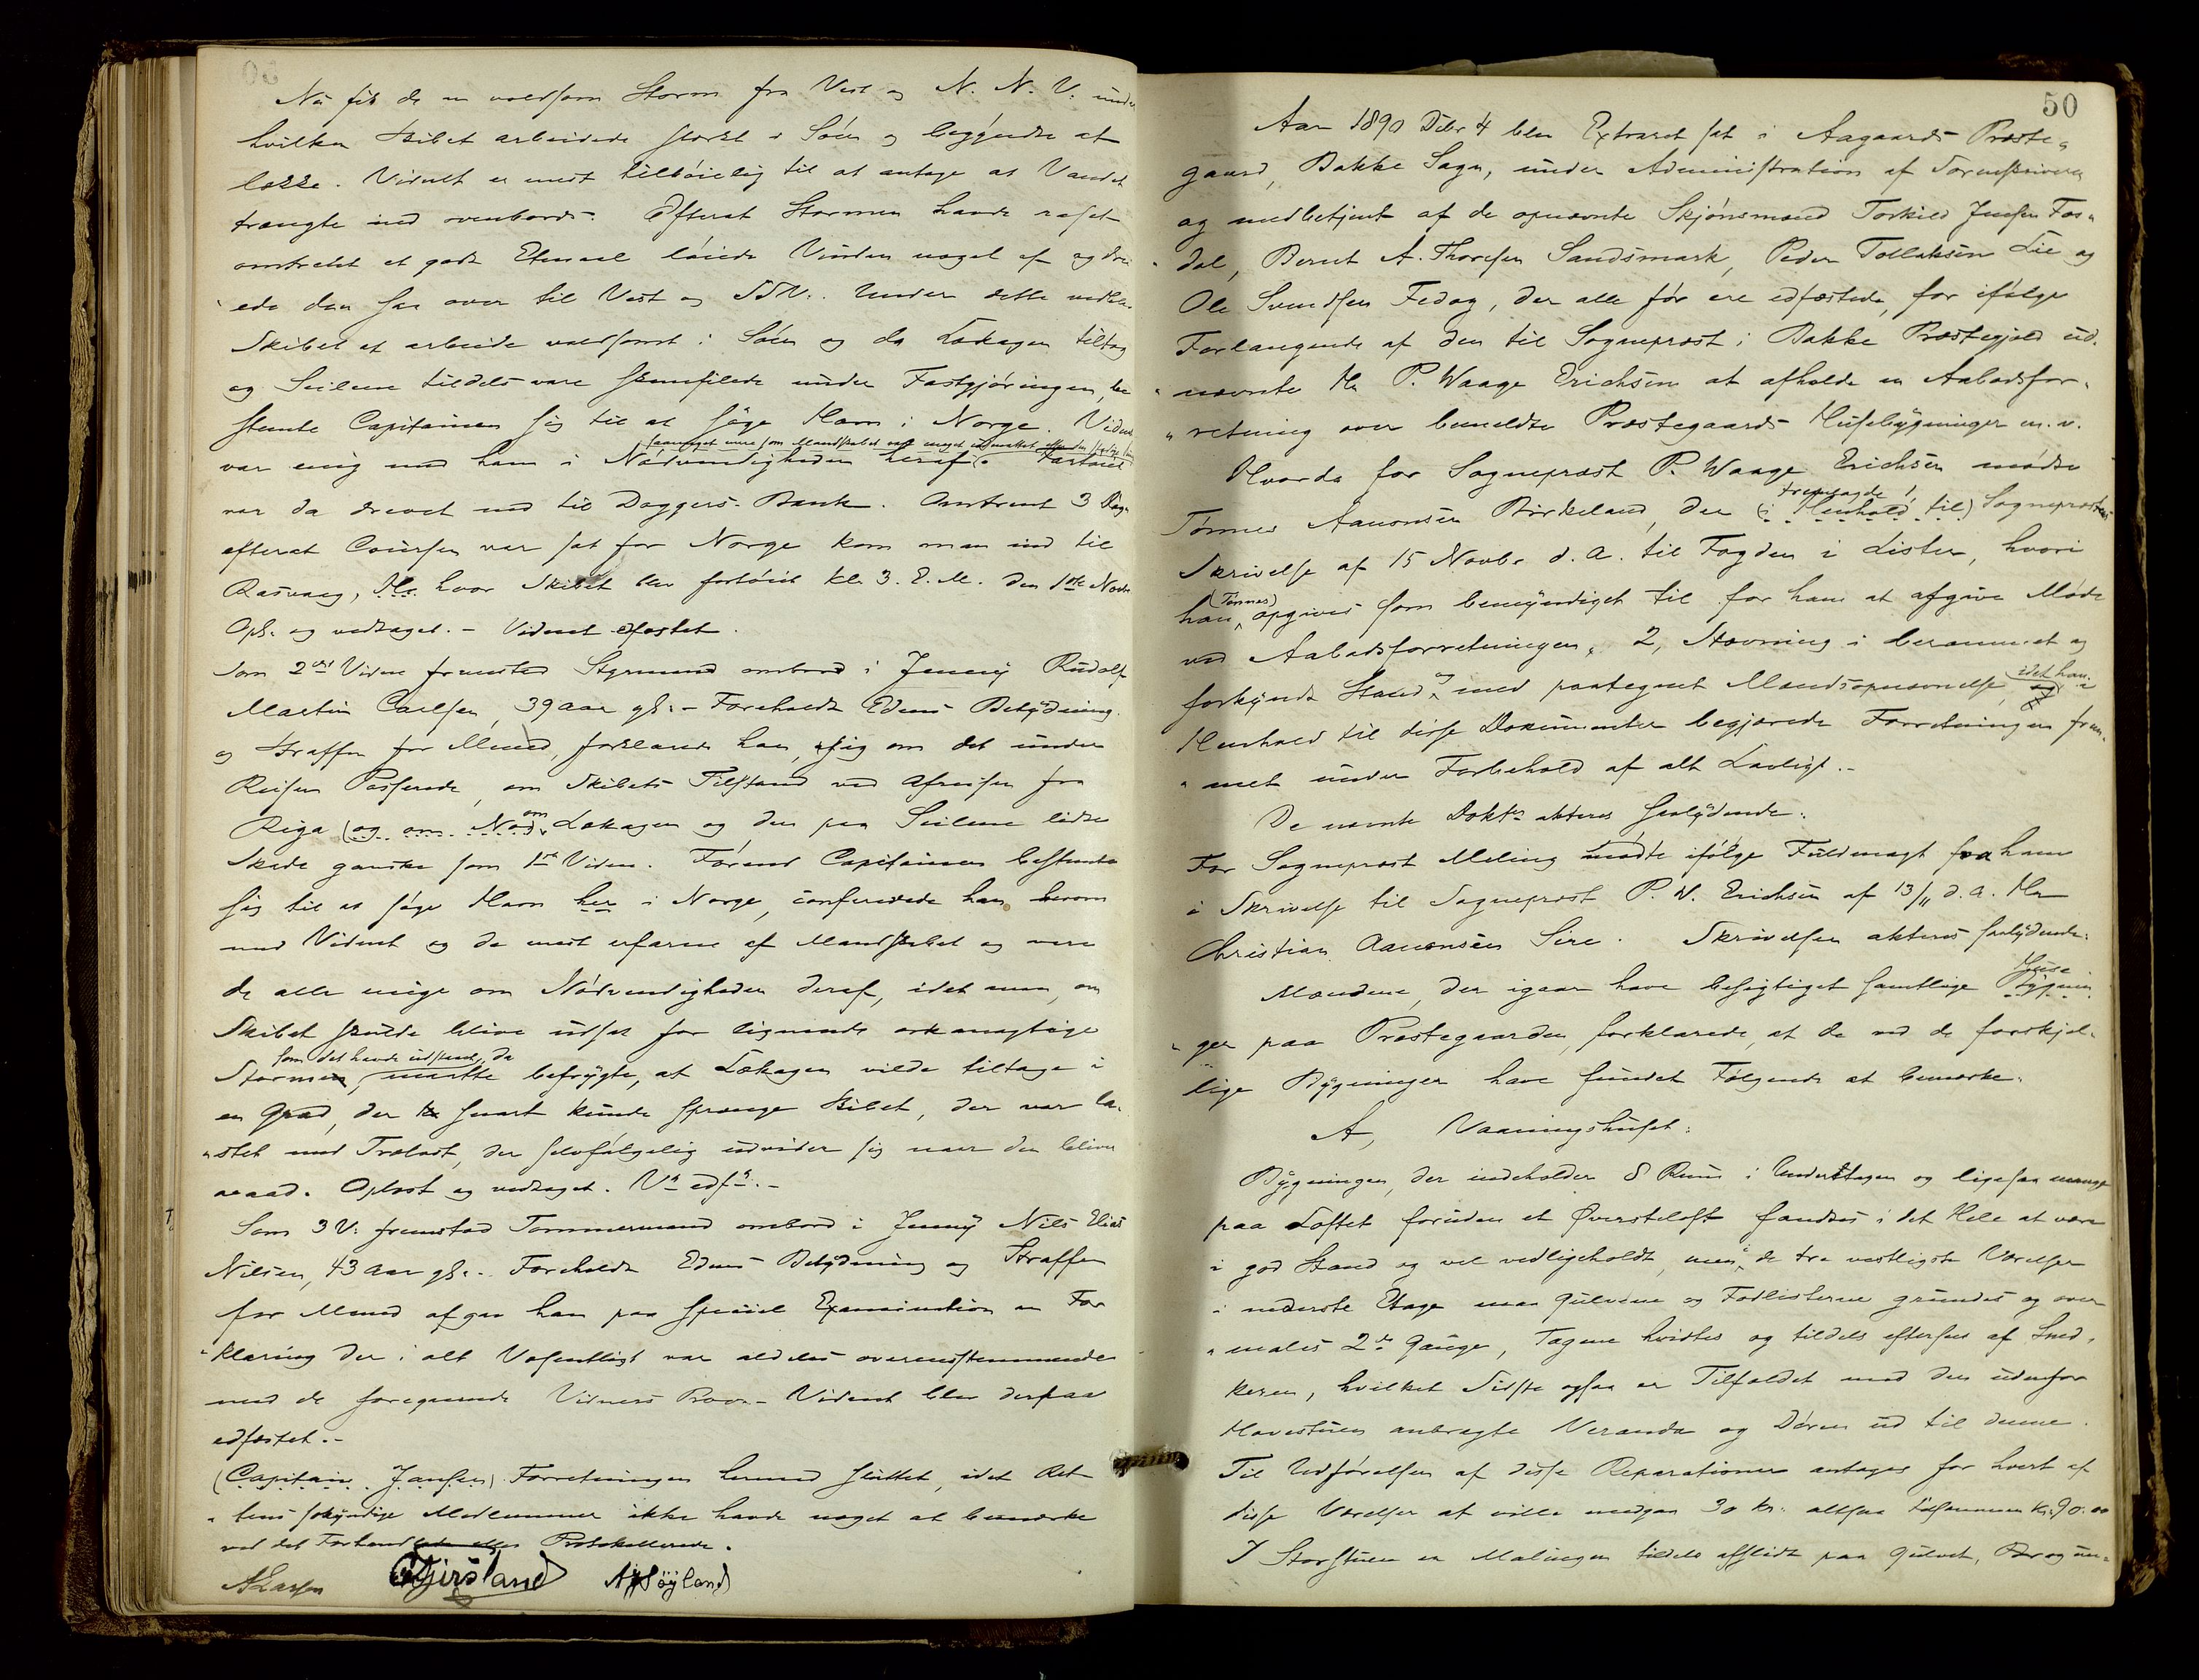 Nu fik de en voldsom Storm fra Vest og N. N. V. under
hvilken Skibet arbeidede stærkt i Søen og begyndte at
lække. Vidnet er mest tilbøielig til at antage at Vandet
trængte ind ovenbords. Efterat Stormen havde raset
omtrent et godt Etmaal løiede Vinden noget af og drei
ede den saa over til Vest og SSV. Under dette vedblev
Skibet at arbeide voldsomt i Søen og da Lækagen tiltog
og Seilene tildels vare skamfilede under Fastgjøringen, be
stemte Capitainen sig til at søge Havn i Norge. Vidnet
saameget mere som Mandskabet var meget udmattet
var enig med ham i Nødvendigheden heraf. Fartøiet
var da drevet ned til Doggers-Bank. Omtrent 3 Dage
efterat Coursen var sat for Norge kom man ind til
Rasvaag, He hvor Skibet blev fortøiet Kl. 3. E. M. den 1ste Novbr
Opl. og vedtaget. - Vidnet edfæstet.
Som 2det Vidne fremstod Styrmand ombord i Jenny Rudolf
Martin Carlsen, 39 aar gl. - Foreholdt Edens Betydning
og Straffen for Mened, forklarede han sig om det under
Reisen Passerede, om Skibets Tilstand ved Afreisen fra
Riga (og om Nød) om Lækagen og den paa Seilene lidte
Skade ganske som 1ste Vidne. Førend Capitainen bestemte
sig til at søge Havn her i Norge, confererede han herom
med Vidnet og de mest erfarne af Mandskabet og vare
de alle enige om Nødvendigheden deraf, idet man, om
Skibet skulde blive udsat for lignende orkanagtige
som det havde udstaaet, da
Stormen, maatte befrygte, at Lækagen vilde tiltage i
en Grad, der snart kunde sprænge Skibet, der var la-
stet med Trælast, der selvfølgelig udvider sig naar den bliver
vaad. Oplæst og vedtaget. Vn edfn. -
Som 3 V. fremstod Tømmermand ombord i Jenny Nils Elias
Nilsen, 43 Aar gl. - Foreholdt Edens Betydning og Straffen
for Mened afgav han paa speciel Examination en For
klaring der i alt Væsentligt var aldeles overensstemmende
med de foregaaende Vidners Prov. - Vidnet blev derpaa
edfæstet. -
(Capitain Jansen) Forretningen hermed sluttet, idet Ret
tens søkyndige Medlemmer ikke havde noget at bemærke
ved det Forhandlede eller Protokollerede.
A Larsen Gjersland A. Høyland
50
Aar 1890 Debr 4 blev Extraret sat i Aagaards Præste-
gaard, Bakke Sogn, under Administration af Sorenskriveren
og medbetjent af de opnævnte Skjønsmænd Torkild Jensen Fos-
dal, Bernt A. Thorsen Sandsmark, Peder Tollaksen Lie og
Ole Svendsen Fedog, der alle før ere edfæstede, for ifølge
Forlangende af den til Sogneprest i Bakke Præstegjeld ud-
nævnte Hr P. Waage Erichsen at afholde en Aabodsfor-
retning over bemeldte Præstegaards Husebygninger m. v.
Hvorda for Sogneprest P. Waage Erichsen mødte
fremlagde 1,
Tønnes Aanonsen Birkeland, der (i Henhold til) Sogneprestens
Skrivelse af 15 Novbr d. A. til Fogden i Lister, hvori
(Tønnes)
han opgives som bemyndiget til for ham at afgive Møde
ved Aabodsforretningen, 2, Stævning i berammet og
forkyndt Stand og med paategnet Mandsopnævnelse, idet han i
Henhold til disse Dokumenter begjærede Forretningen frem-
met under Forbehold af alt Lovligt. -
De nævnte Dokter akteres saalydende:
For Sogneprest Meling mødte ifølge Fuldmagt fra ham
i Skrivelse til Sogneprest P. W. Erichsen af 13/11 d. A. Hr
Christian Aanonsen Sire. Skrivelsen akteres saalydende:
Mændene, der igaar have besigtiget samtlige Huse Bygnin
ger paa Præstegaarden, forklarede, at de ved de forskjel-
lige Bygninger have fundet Følgende at bemærke.
A, Vaaningshuset:
Bygningen, der indeholder 8 Rum i Underetagen og ligesaa mange
paa Loftet foruden et Øversteloft fandtes i det Hele at være
i god Stand og vel vedligeholdt, men i de tre vestligste Værelser
i nederste Etage maa Gulvene og Fodlisterne grundes og over
males 2de Gange, Tagene hvidtes og tildels eftersees af Sned-
keren, hvilket Sidste ogsaa er Tilfældet med den udenfor
Havestuen anbragte Veranda og Døren ud til denne.
Til Udførelsen af disse Reparationer antages for hvert af
disse Værelser at ville medgaa 30 Kr. altsaa tilsammen Kr. 90.00
I Storstuen er Malingen tildels afslidt paa Gulvet,